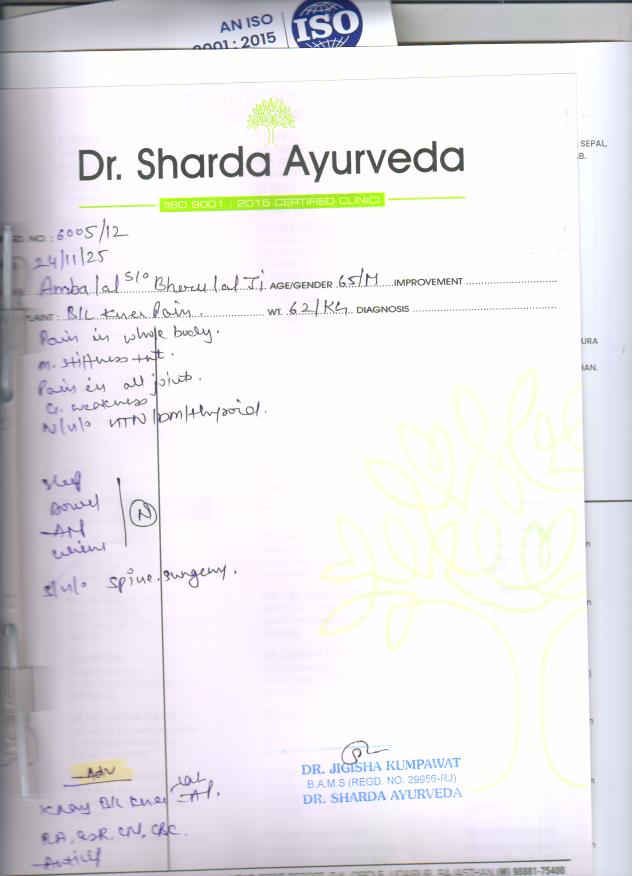 AN ISO
9001 : 2015
ISO
SEPAL,
Dr. Sharda Ayurveda
(ISO 9001 : 2015 CERTIFIED CLINIC)
NO. : 6005/12
24/11/25
Ambalal s/o Bherulal Ji AGE/GENDER 65/M IMPROVEMENT
LAINT : B/L Knee Pain. WT. 62/KG DIAGNOSIS
URA
Pain in whole body.
HAN.
m. stiffness +nt.
Pain in all joint.
G. weakness
N/H/O HTN/DM/thyroid.
Sleep
Bowel
N
Urine
S/H/O Spine surgery.
DR. JIGISHA KUMPAWAT
B.A.M.S (REGD. NO. 29956-RJ)
DR. SHARDA AYURVEDA
Adv
Xray B/L Knee Lat AP.
RA, ESR, CBC.
UDAIPUR, RAJASTHAN (M) 98881-75400